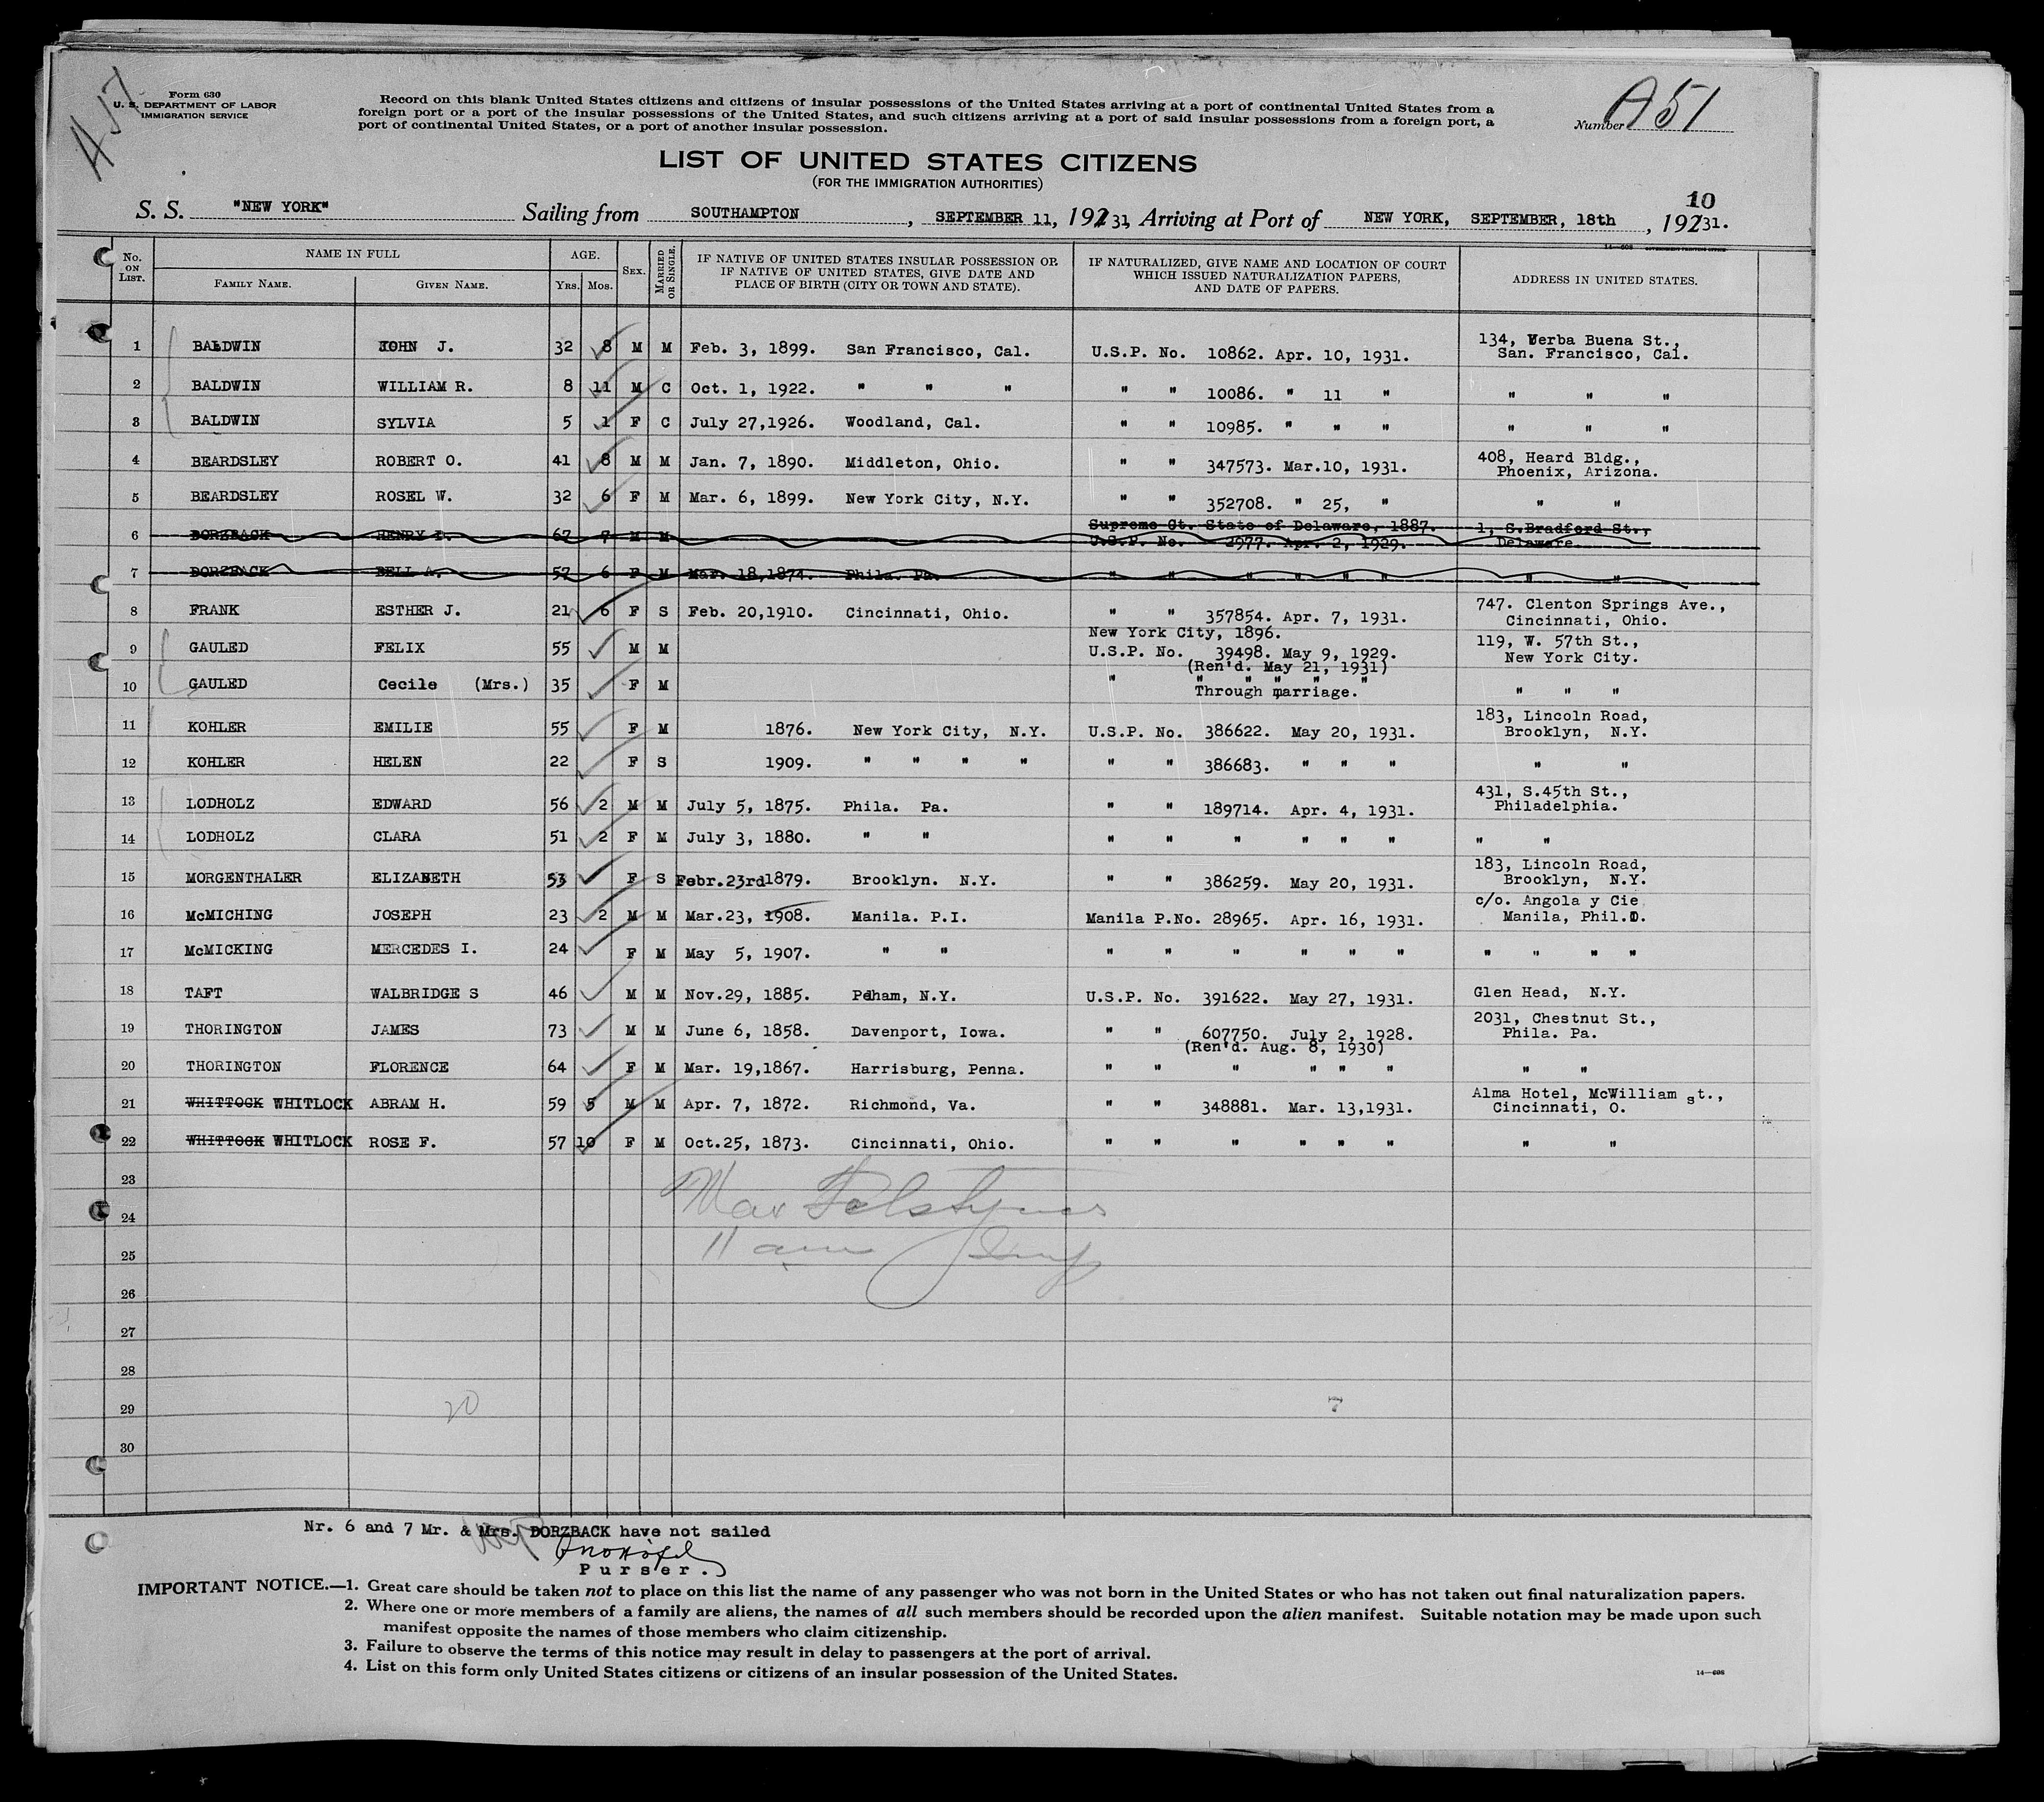 Form 630
U. S. DEPARTMENT OF LABOR
IMMIGRATION SERVICE
Record on this blank United States citizens and citizens of insular possessions of the United States arriving at a port of continental United States from a
foreign port or a port of the insular possessions of the United States, and such citizens arriving at a port of said insular possessions from a foreign port, a
port of continental United States, or a port of another insular possession.
Number A51
LIST OF UNITED STATES CITIZENS
(FOR THE IMMIGRATION AUTHORITIES)
10
S. S. "NEW YORK" Sailing from SOUTHAMPTON, SEPTEMBER 11, 19231, Arriving at Port of NEW YORK, SEPTEMBER, 18th, 19231.
14—608 GOVERNMENT PRINTING OFFICE
No. ON LIST. NAME IN FULL FAMILY NAME. GIVEN NAME. AGE. YRS. MOS. SEX. MARRIED OR SINGLE. IF NATIVE OF UNITED STATES INSULAR POSSESSION OR IF NATIVE OF UNITED STATES, GIVE DATE AND PLACE OF BIRTH (CITY OR TOWN AND STATE). IF NATURALIZED, GIVE NAME AND LOCATION OF COURT WHICH ISSUED NATURALIZATION PAPERS, AND DATE OF PAPERS. ADDRESS IN UNITED STATES.
1 BALDWIN JOHN J. 32 8 M M Feb. 3, 1899. San Francisco, Cal. U.S.P. No. 10862. Apr. 10, 1931. 134, Verba Buena St., San. Francisco, Cal.
2 BALDWIN WILLIAM R. 8 11 M C Oct. 1, 1922. " " " " " 10086. " 11 " " " "
3 BALDWIN SYLVIA 5 1 F C July 27,1926. Woodland, Cal. " " 10985. " " " " " "
4 BEARDSLEY ROBERT O. 41 8 M M Jan. 7, 1890. Middleton, Ohio. " " 347573. Mar.10, 1931. 408, Heard Bldg., Phoenix, Arizona.
5 BEARDSLEY ROSEL W. 32 6 F M Mar. 6, 1899. New York City, N.Y. " " 352708. " 25, " " "
6 DORZBACK HENRY I. 67 7 M M Supreme Ct. State of Delaware, 1887. U.S.P. No. 2977. Apr. 2, 1929. 1, S.Bradford St., Delaware.
7 DORZBACK BELL A. 57 6 F M Mar. 18,1874. Phila. Pa. " " " " " " " "
8 FRANK ESTHER J. 21 6 F S Feb. 20,1910. Cincinnati, Ohio. " " 357854. Apr. 7, 1931. 747. Clenton Springs Ave., Cincinnati, Ohio.
9 GAULED FELIX 55 M M New York City, 1896. U.S.P. No. 39498. May 9, 1929. (Ren'd. May 21, 1931) 119, W. 57th St., New York City.
10 GAULED Cecile (Mrs.) 35 F M " " " " " " Through marriage. " " "
11 KOHLER EMILIE 55 F M 1876. New York City, N.Y. U.S.P. No. 386622. May 20, 1931. 183, Lincoln Road, Brooklyn, N.Y.
12 KOHLER HELEN 22 F S 1909. " " " " " " 386683. " " " " "
13 LODHOLZ EDWARD 56 2 M M July 5, 1875. Phila. Pa. " " 189714. Apr. 4, 1931. 431, S.45th St., Philadelphia.
14 LODHOLZ CLARA 51 2 F M July 3, 1880. " " " " " " " " " "
15 MORGENTHALER ELIZABETH 53 F S Febr.23rd1879. Brooklyn. N.Y. " " 386259. May 20, 1931. 183, Lincoln Road, Brooklyn, N.Y.
16 McMICHING JOSEPH 23 2 M M Mar.23, 1908. Manila. P.I. Manila P.No. 28965. Apr. 16, 1931. c/o. Angola y Cie Manila, Phil.I.
17 McMICKING MERCEDES I. 24 F M May 5, 1907. " " " " " " " " " " " "
18 TAFT WALBRIDGE S 46 M M Nov.29, 1885. Pelham, N.Y. U.S.P. No. 391622. May 27, 1931. Glen Head, N.Y.
19 THORINGTON JAMES 73 M M June 6, 1858. Davenport, Iowa. " " 607750. July 2, 1928. (Ren'd. Aug. 8, 1930) 2031, Chestnut St., Phila. Pa.
20 THORINGTON FLORENCE 64 F M Mar. 19,1867. Harrisburg, Penna. " " " " " " " "
21 WHITTOCK WHITLOCK ABRAM H. 59 5 M M Apr. 7, 1872. Richmond, Va. " " 348881. Mar. 13,1931. Alma Hotel, McWilliam st., Cincinnati, O.
22 WHITTOCK WHITLOCK ROSE F. 57 10 F M Oct.25, 1873. Cincinnati, Ohio. " " " " " " " "
23
24
25
26
27
28
29 20 7
30
Nr. 6 and 7 Mr. & Mrs. DORZBACK have not sailed
Purser.
IMPORTANT NOTICE.—1. Great care should be taken not to place on this list the name of any passenger who was not born in the United States or who has not taken out final naturalization papers.
2. Where one or more members of a family are aliens, the names of all such members should be recorded upon the alien manifest. Suitable notation may be made upon such
manifest opposite the names of those members who claim citizenship.
3. Failure to observe the terms of this notice may result in delay to passengers at the port of arrival.
4. List on this form only United States citizens or citizens of an insular possession of the United States.
14—608